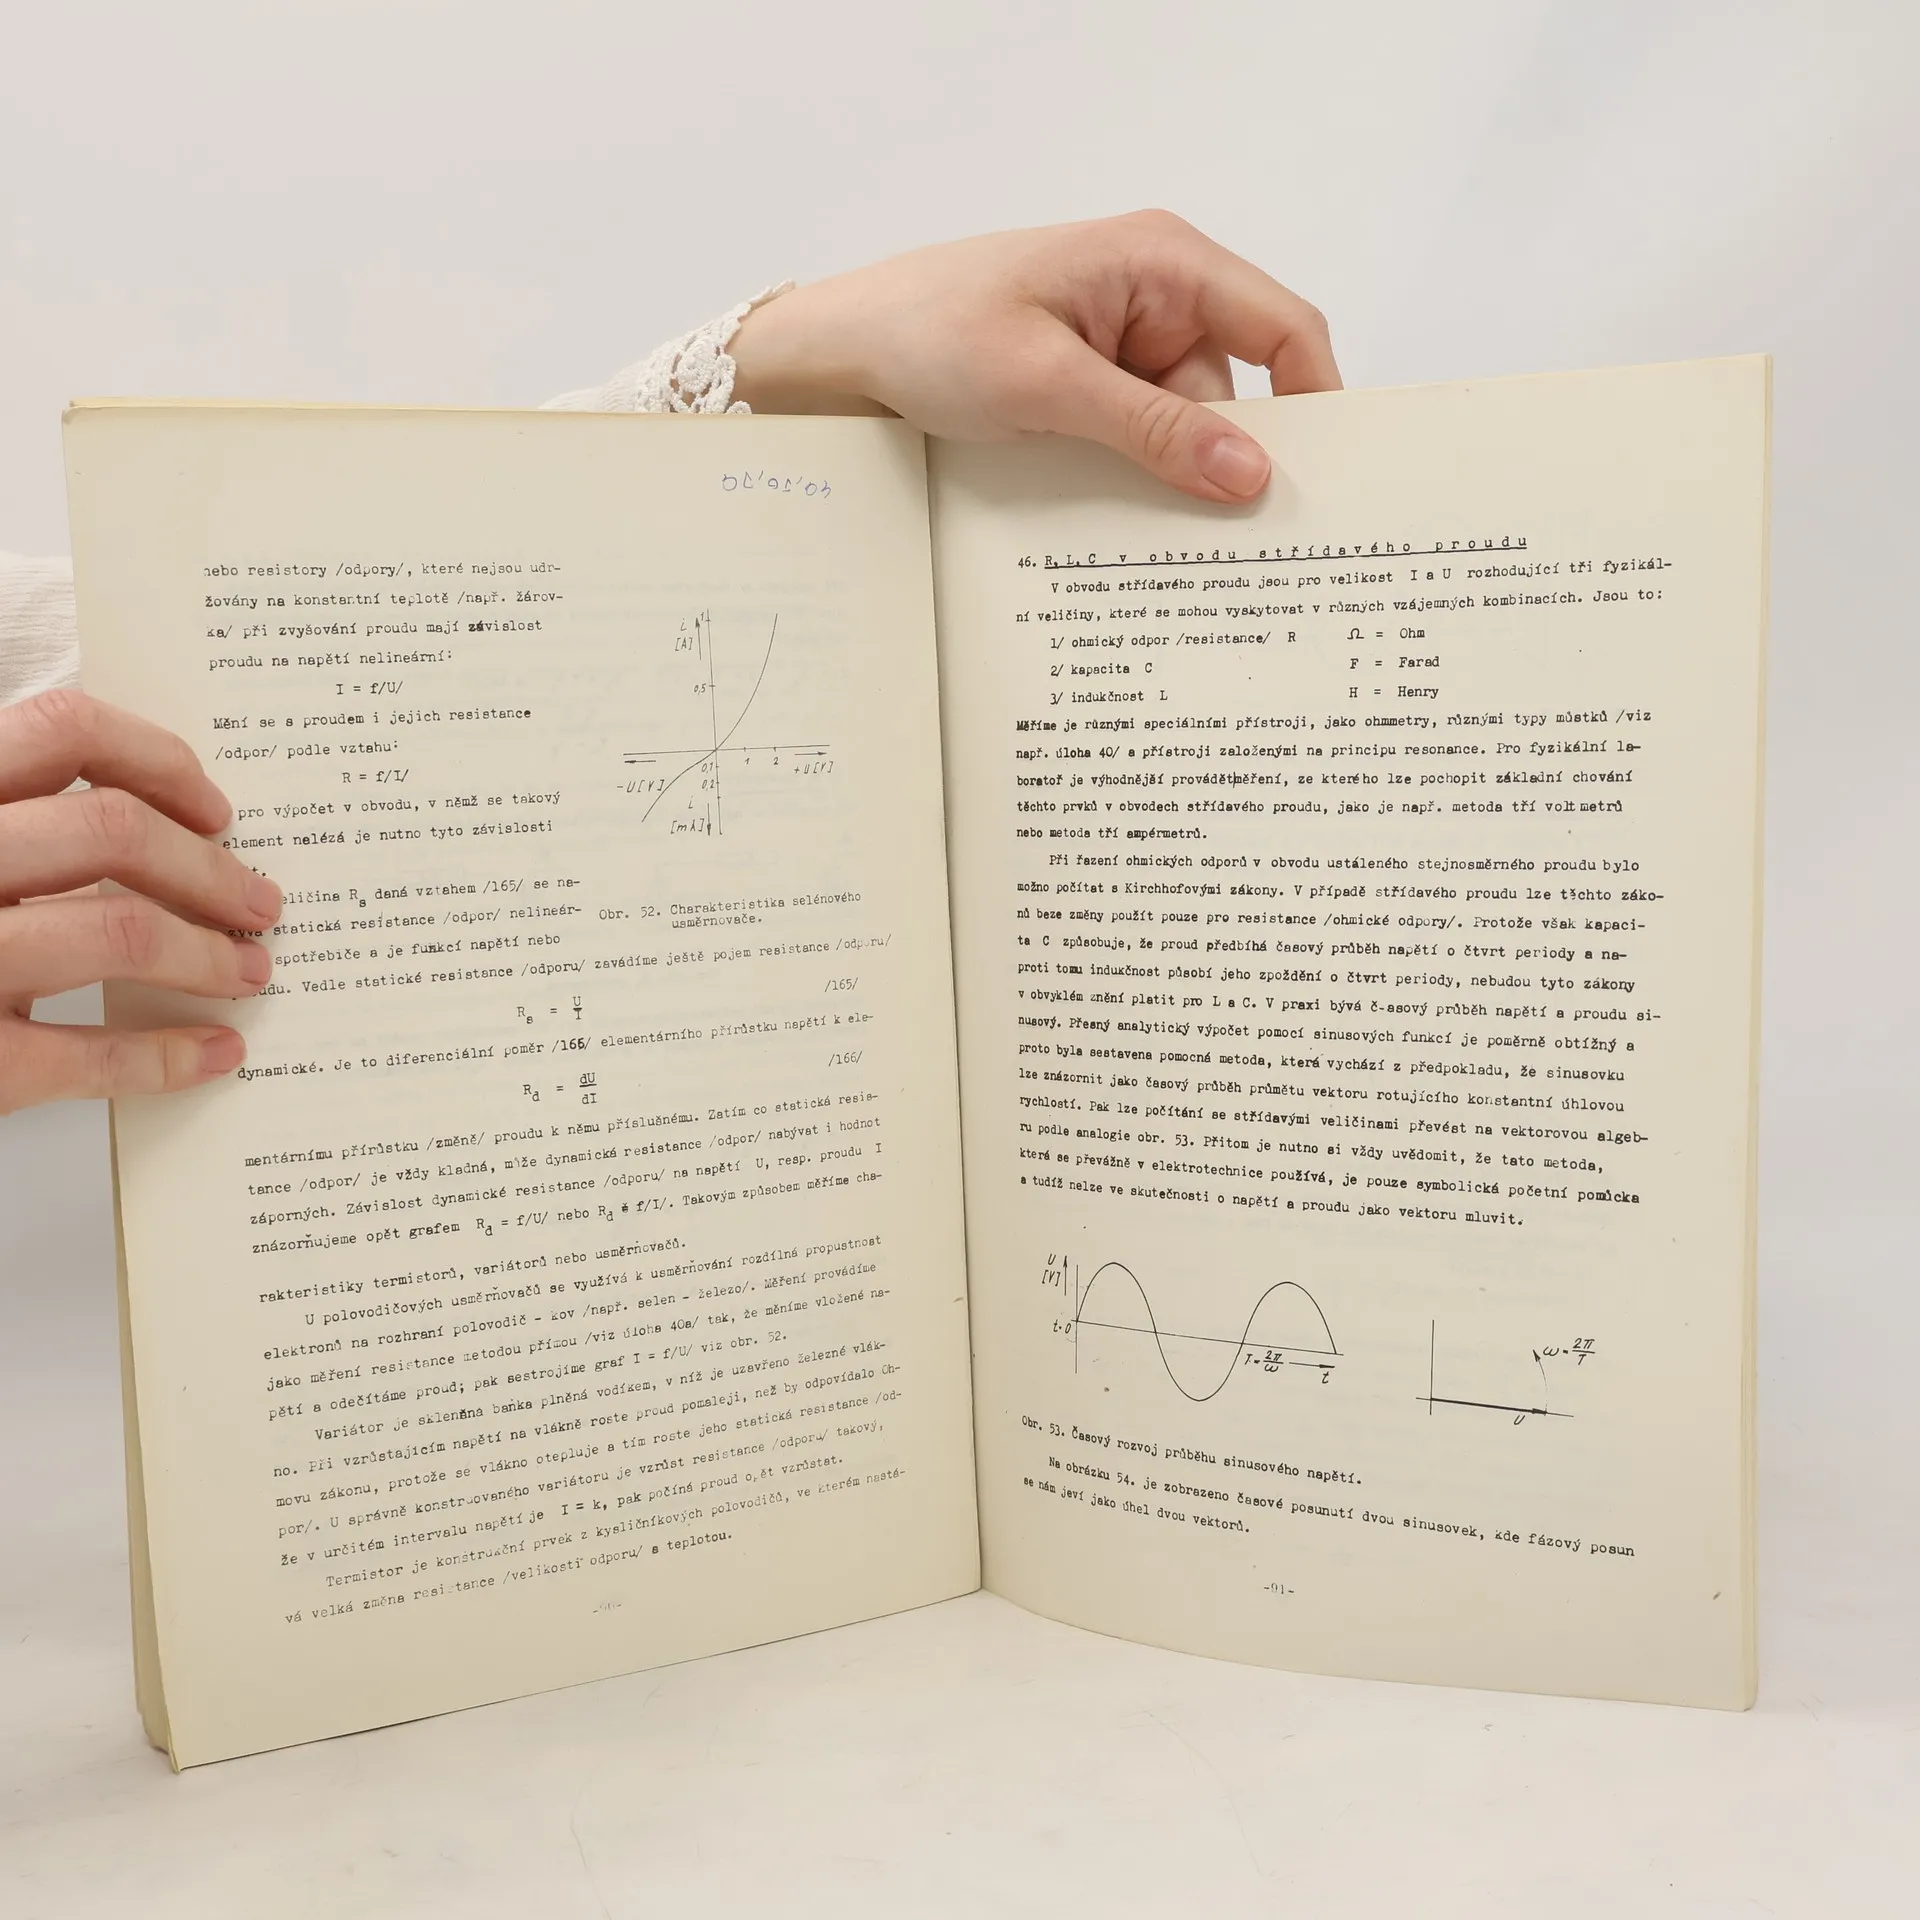 nebo resistory /odpory/, které nejsou udr-
žovány na konstantní teplotě /např. žárov-
ka/ při zvyšování proudu mají závislost
proudu na napětí nelineární:
I = f/U/
Mění se s proudem i jejich resistance
/odpor/ podle vztahu:
R = f/I/
pro výpočet v obvodu, v němž se takový
element nelézá je nutno tyto závislosti
i
[A]
1
0,5
0,1
0,2
1
2
+U[V]
-U[V]
i
[mA]
Rs daná vztahem /165/ se na-
zývá statická resistance /odpor/ nelineár-
spotřebiče a je funkcí napětí nebo
Obr. 52. Charakteristika selénového
usměrnovače.
Vedle statické resistance /odporu/ zavádíme ještě pojem resistance /odporu/
Rs = U/I /165/
dynamické. Je to diferenciální poměr /166/ elementárního přírůstku napětí k ele-
Rd = dU/dI /166/
mentárnímu přírůstku /změně/ proudu k němu příslušnému. Zatím co statická resis-
tance /odpor/ je vždy kladná, může dynamická resistance /odpor/ nabývat i hodnot
záporných. Závislost dynamické resistance /odporu/ na napětí U, resp. proudu I
znázorňujeme opět grafem Rd = f/U/ nebo Rd = f/I/. Takovým způsobem měříme cha-
rakteristiky termistorů, variátorů nebo usměrňovačů.
U polovodičových usměrňovačů se využívá k usměrňování rozdílná propustnost
elektronů na rozhraní polovodič - kov /např. selen - železo/. Měření provádíme
jako měření resistance metodou přímou /viz úloha 40a/ tak, že měníme vložené na-
pětí a odečítáme proud; pak sestrojíme graf I = f/U/ viz obr. 52.
Variátor je skleněná baňka plněná vodíkem, v níž je uzavřeno železné vlák-
no. Při vzrůstajícím napětí na vlákně roste proud pomaleji, než by odpovídalo Oh-
movu zákonu, protože se vlákno otepluje a tím roste jeho statická resistance /od-
por/. U správně konstruovaného variátoru je vzrůst resistance /odporu/ takový,
že v určitém intervalu napětí je I = k, pak počíná proud opět vzrůstat.
Termistor je konstrukční prvek z kysličníkových polovodičů, ve kterém nastá-
vá velká změna resistance /velikosti odporu/ s teplotou.
-90-
46. R, L, C v obvodu střídavého proudu
V obvodu střídavého proudu jsou pro velikost I a U rozhodující tři fyzikál-
ní veličiny, které se mohou vyskytovat v různých vzájemných kombinacích. Jsou to:
1/ ohmický odpor /resistance/ R Ω = Ohm
2/ kapacita C F = Farad
3/ indukčnost L H = Henry
Měříme je různými speciálními přístroji, jako ohmmetry, různými typy můstků /viz
např. úloha 40/ a přístroji založenými na principu resonance. Pro fyzikální la-
boratoř je výhodnější provádět měření, ze kterého lze pochopit základní chování
těchto prvků v obvodech střídavého proudu, jako je např. metoda tří voltmetrů
nebo metoda tří ampérmetrů.
Při řazení ohmických odporů v obvodu ustáleného stejnosměrného proudu bylo
možno počítat s Kirchhofovými zákony. V případě střídavého proudu lze těchto záko-
nů beze změny použít pouze pro resistance /ohmické odpory/. Protože však kapaci-
ta C způsobuje, že proud předbíhá časový průběh napětí o čtvrt periody a na-
proti tomu indukčnost působí jeho zpoždění o čtvrt periody, nebudou tyto zákony
v obvyklém znění platit pro L a C. V praxi bývá č-asový průběh napětí a proudu si-
nusový. Přesný analytický výpočet pomocí sinusových funkcí je poměrně obtížný a
proto byla sestavena pomocná metoda, která vychází z předpokladu, že sinusovku
lze znázornit jako časový průběh průmětu vektoru rotujícího konstantní úhlovou
rychlostí. Pak lze počítání se střídavými veličinami převést na vektorovou algeb-
ru podle analogie obr. 53. Přitom je nutno si vždy uvědomit, že tato metoda,
která se převážně v elektrotechnice používá, je pouze symbolická početní pomůcka
a tudíž nelze ve skutečnosti o napětí a proudu jako vektoru mluvit.
U
[V]
t=0
T=2π/ω
t
ω=2π/T
U
Obr. 53. Časový rozvoj průběhu sinusového napětí.
Na obrázku 54. je zobrazeno časové posunutí dvou sinusovek, kde fázový posun
se nám jeví jako úhel dvou vektorů.
-91-